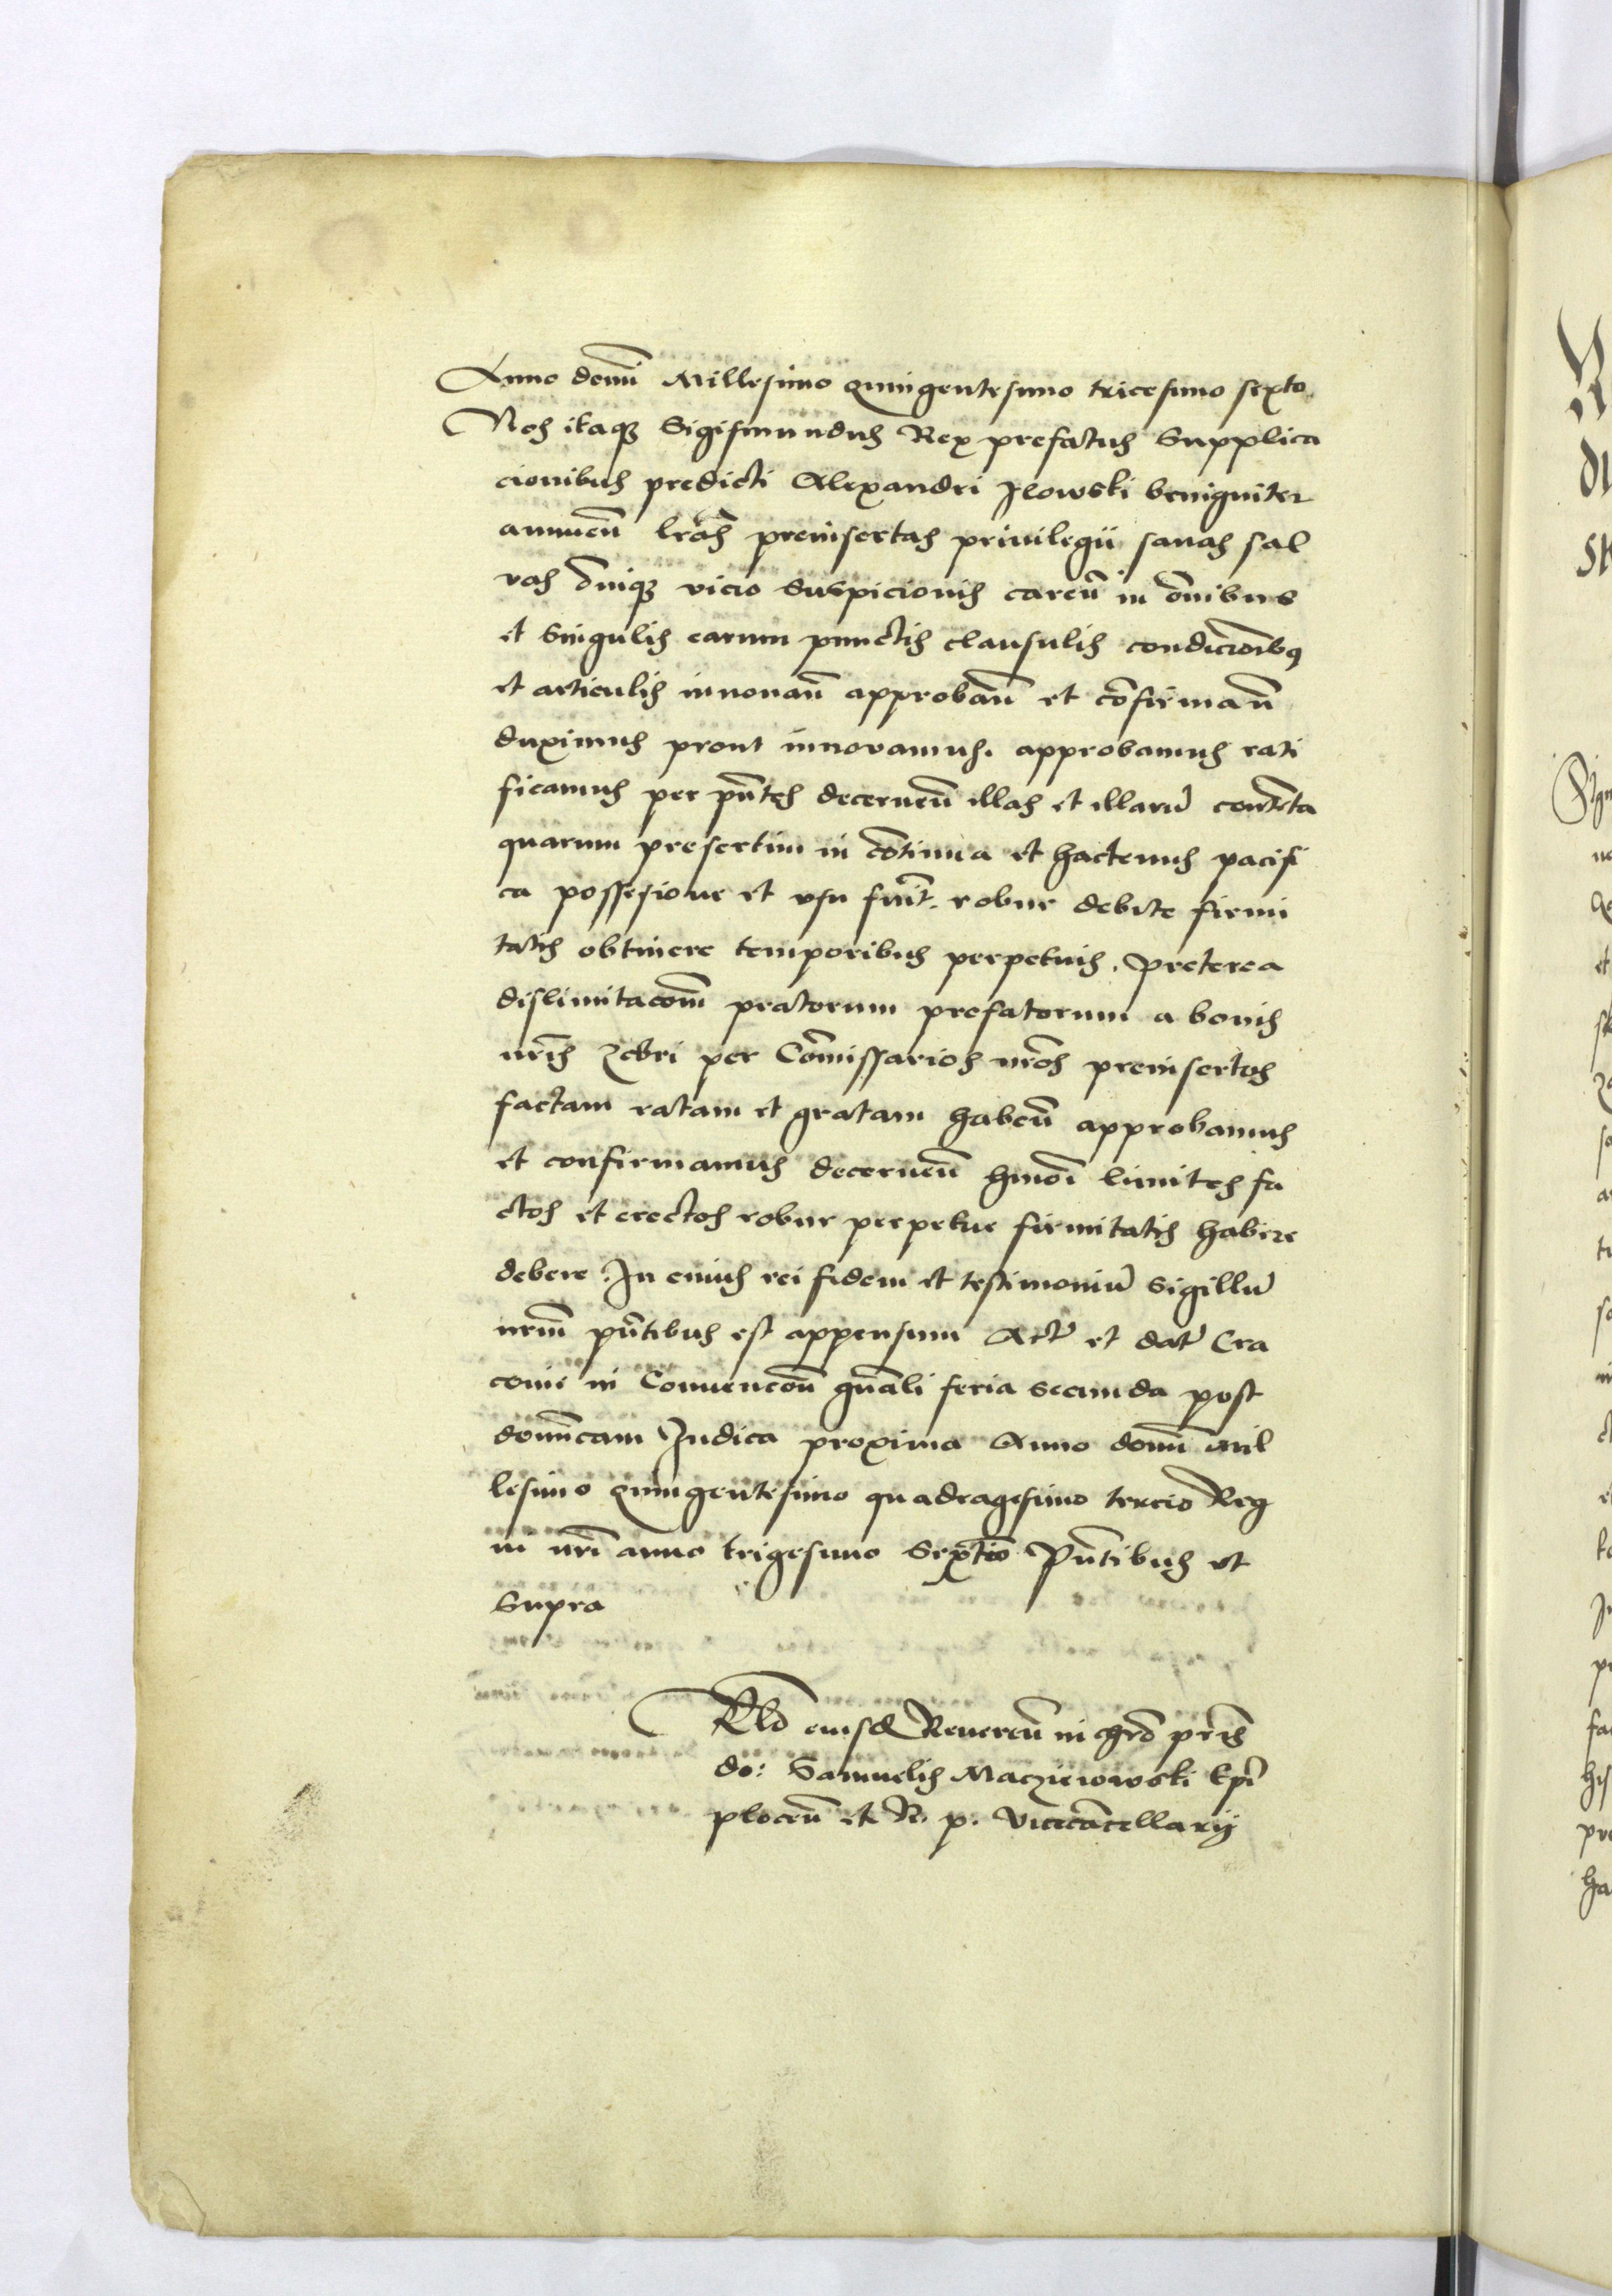 Anno domi Millesimo quingentesimo tricesimo sexto.
Nos itaqz Sigismundus Rex prefatus Supplica
cionibus predicti Alexandri Ilowski benigniter
annuen lras preinsertas privilegii sanas sal
vas oniqz vicio suspicionis caren in omibus
et singulis earum punctis clausulis condicionibq
et articulis innovan approban et cofirman
duximus prout innovamus. approbamus rati
ficamus per pntes decernen illas et illaru contenta
quarum presertim in cotinua et hactenus pacifi
ca possesione et usu fuit. robur debite firmi
tatis obtinere temporibus perpetuis. Preterea
dislimitacom pratorum prefatorum a bonis
nris Zebri per Comissarios nros preinsertos
factam ratam et gratam haben approbamus
et confirmamus decernen hmoi limites fa
ctos et erectos robur perpetue firmitatis habere
debere. In cuius rei fidem et testimoniu Sigillu
nrum pntibus est appensum Act et dat Cra
covie in Convencon gnali feria secunda post
domincam Iudica proxima Anno domi mil
lesimo quingentesimo quadragesimo tercio Reg
ni nri anno trigesimo Septio Pntibus ut
Supra
Rlo eiusd Reveren in chro pris
do: Samuelis Maczieiowski Epi
plocen et R. p. Vicecacellarij